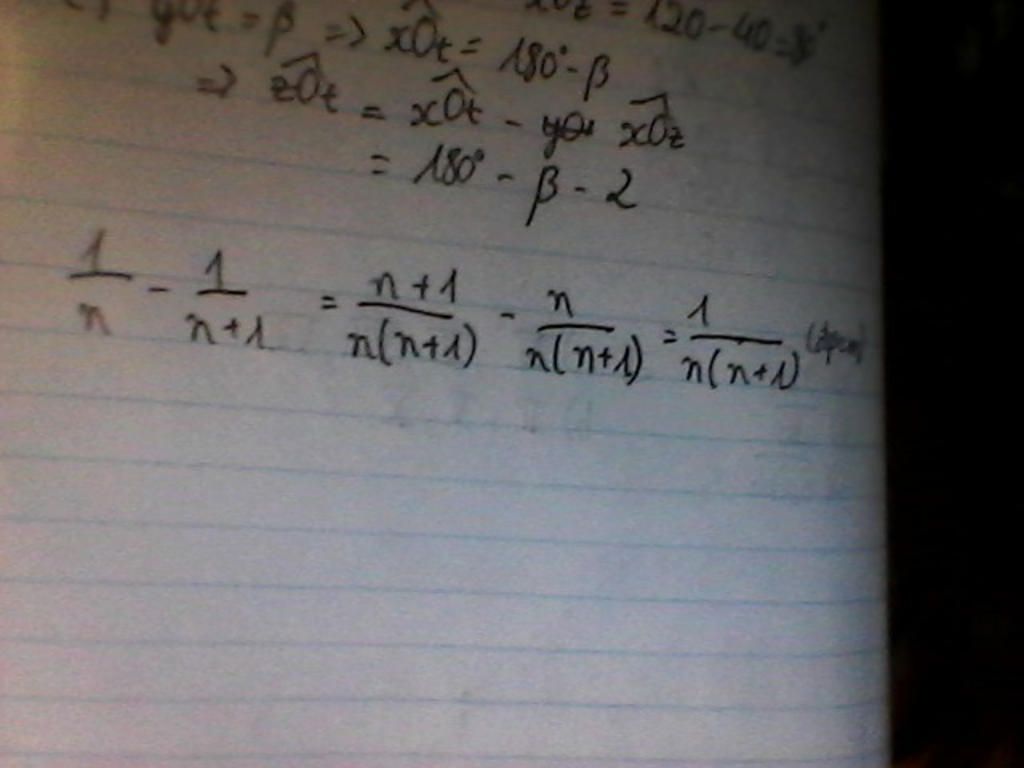 yOt = β => xOt = 180° - β
xOz = 120 - 40 = 80°
=> zOt = xOt - xOz
= 180° - β - 2
1/n - 1/(n+1) = (n+1)/(n(n+1)) - n/(n(n+1)) = 1/(n(n+1))